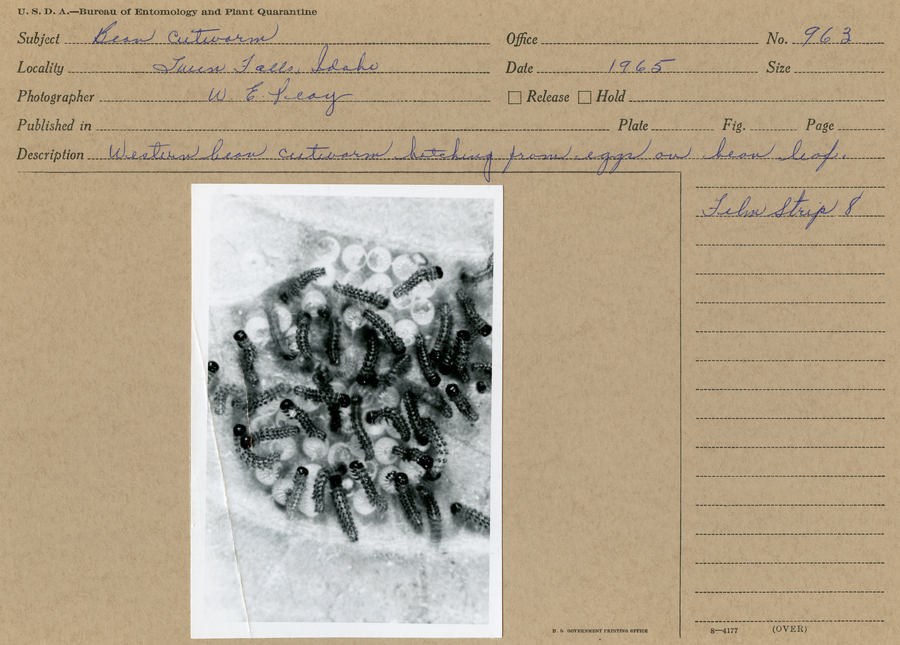 U. S. D. A.—Bureau of Entomology and Plant Quarantine
Subject Bean cutworm Office No. 963
Locality Twin Falls, Idaho Date 1965 Size
Photographer W. E. Peay Release Hold
Published in Plate Fig. Page
Description Western bean cutworm hatching from eggs on bean leaf.
Film Strip 8
U. S. GOVERNMENT PRINTING OFFICE 8—4177 (OVER)